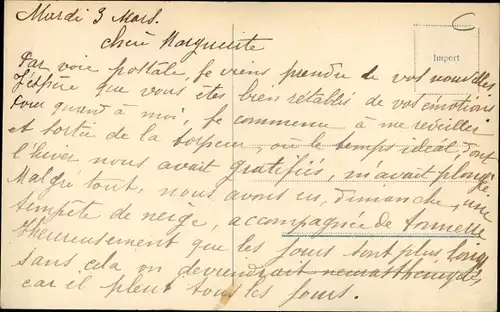 Mardi 3 Mars.
Import
Chère Marguerite
Par voie postale, je viens prendre de vos nouvelles,
J'espère que vous êtes bien rétablés de vos émotions
quant à moi, je commence à me réveiller
et sortir de la torpeur, où le temps idéal, dont
l'hiver nous avait gratifiés, m'avait plongé.
Malgré tout, nous avons eu, dimanche, une
tempête de neige, accompagnée de tonnerre
Heureusement que les jours sont plus longs
sans cela on deviendrait neurasthéniques
car il pleut tous les jours.